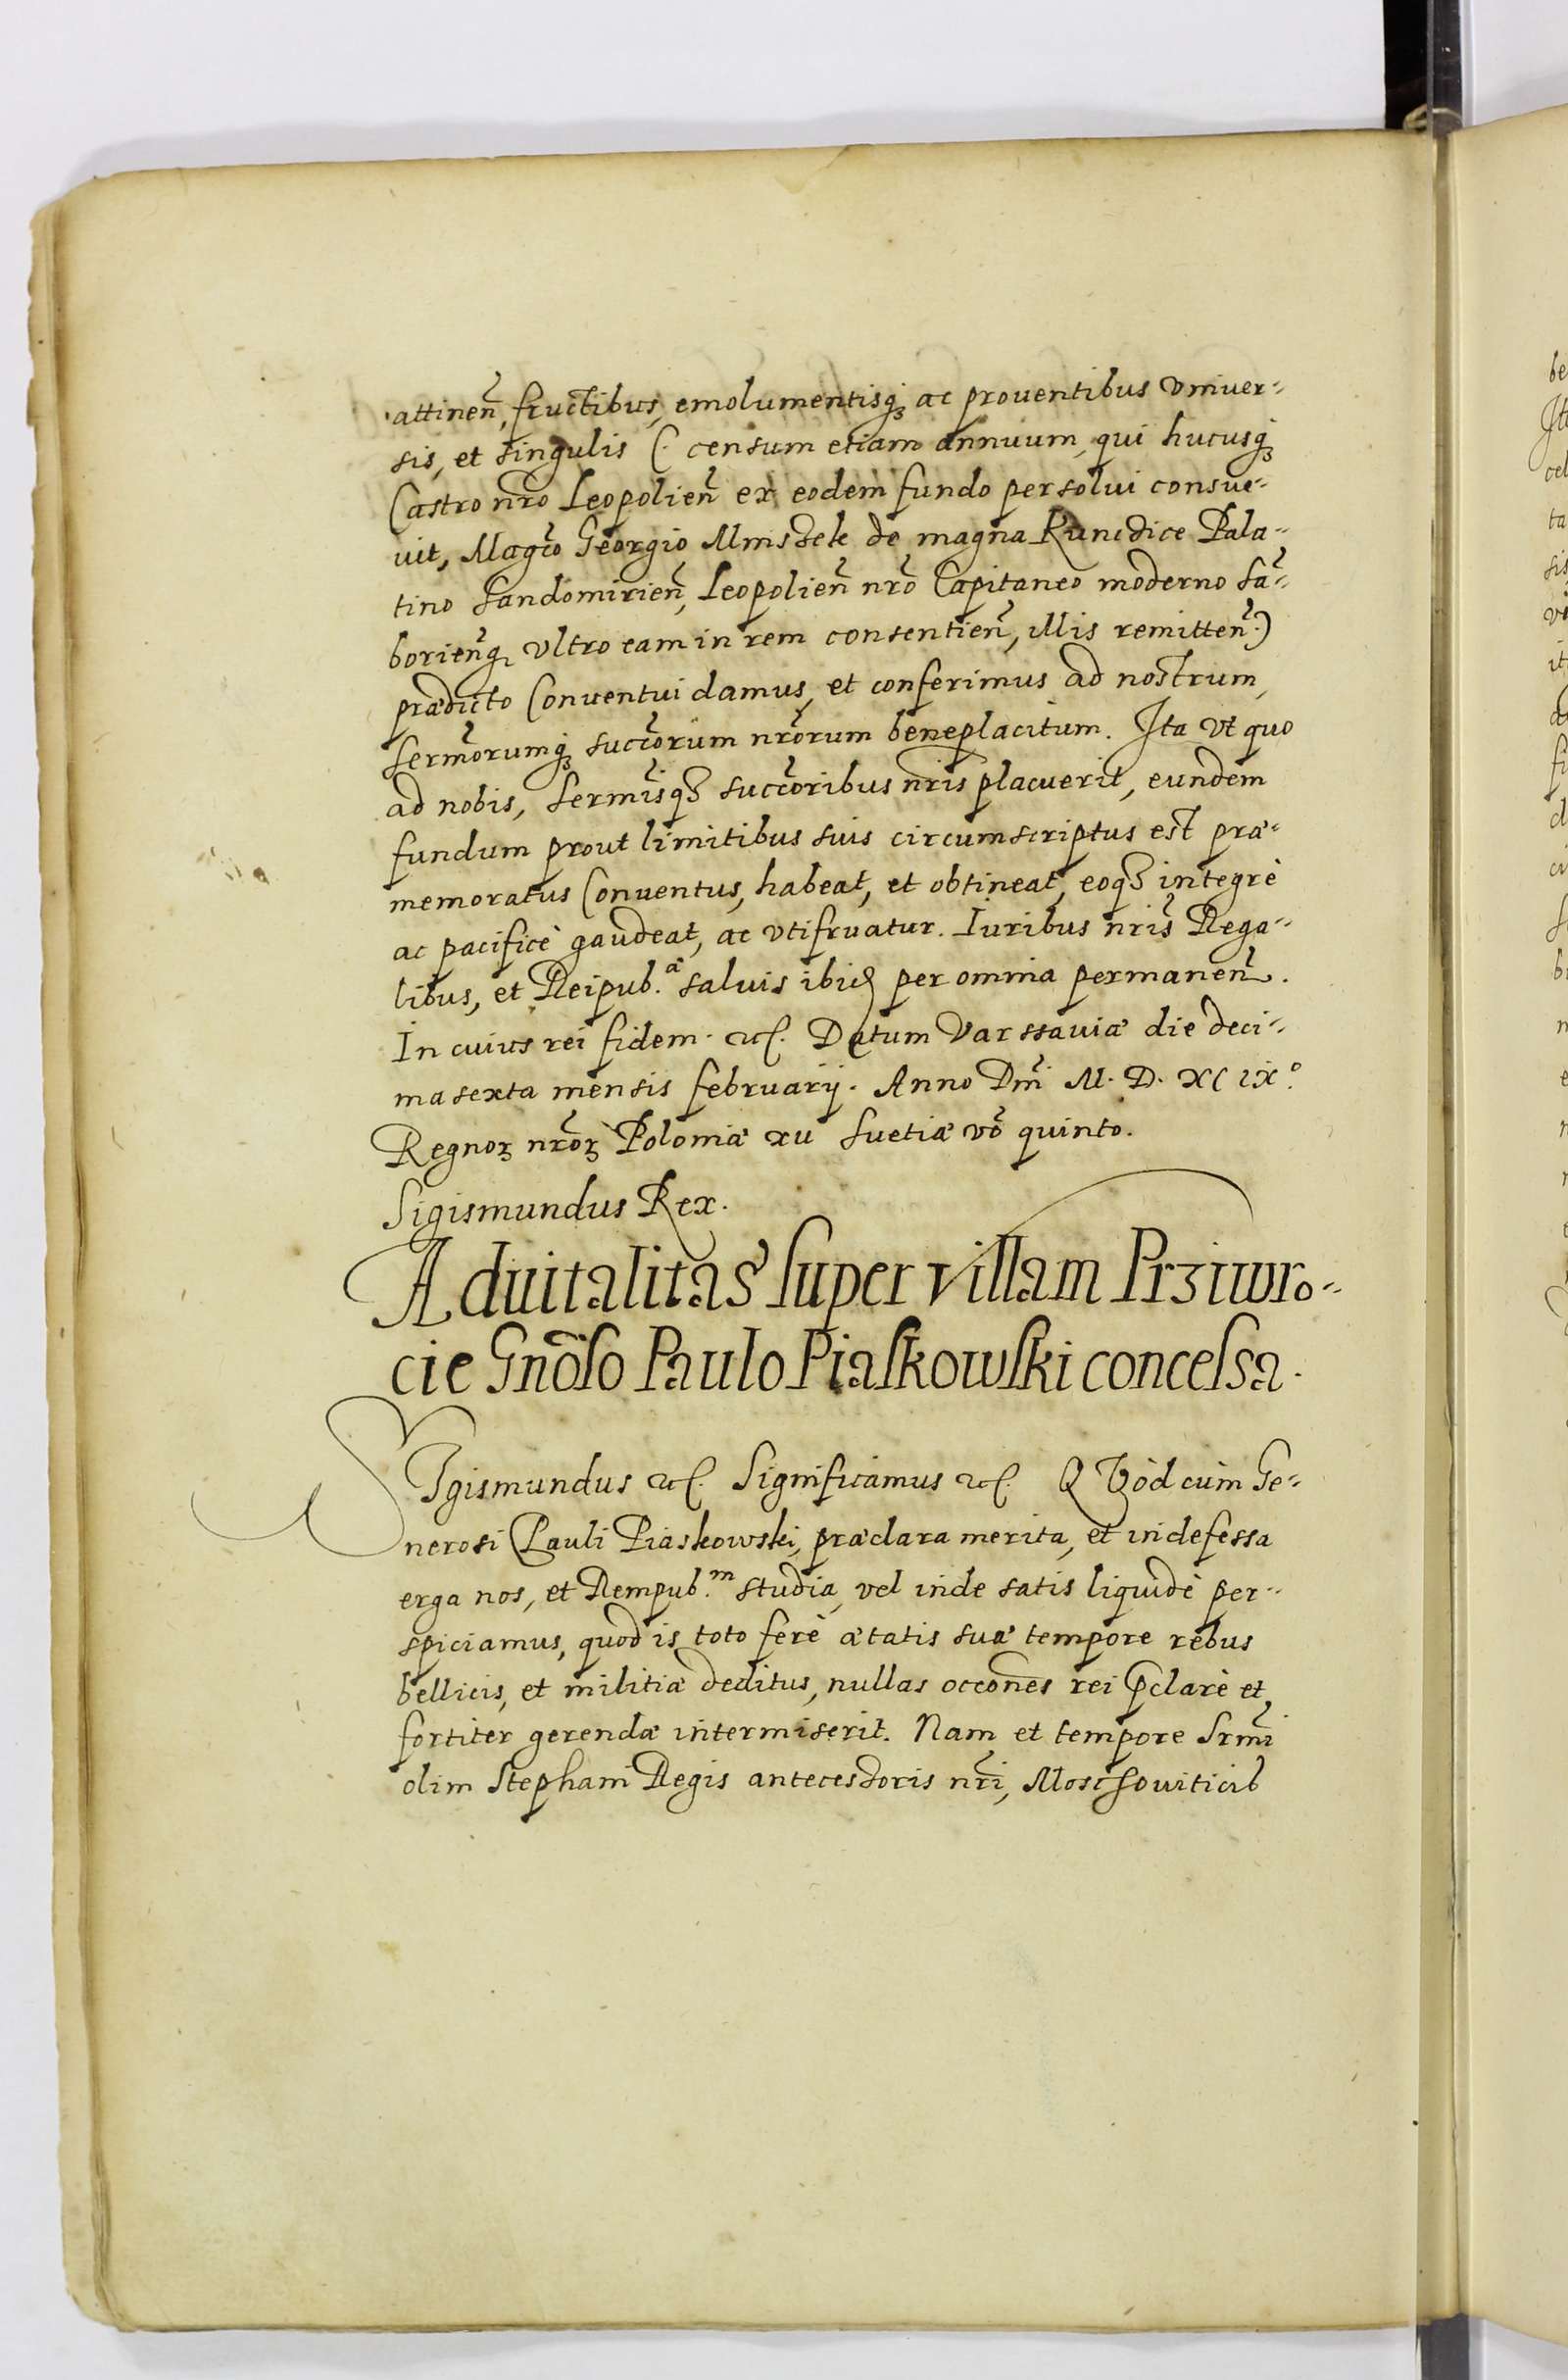 attineñ, fructibus, emolumentisq́ꝫ ac prouentibus vniuer-
sis, et singulis (. censum etiam annuum, qui hucusq́ꝫ
Castro nr̃o Leopolieñ ex eodem fundo persolui consue-
uit, Magc̃o Georgio Mnisdek de magna Kunczice Pala-
tino Sandomirieñ, Leopolieñ nr̃o Capitaneo moderno Sã-
borieñq, vltro eam in rem consentieñ, illis remitteñ.)
prædicto Conuentui damus, et conferimus ad nostrum,
Serm̃orumq́ꝫ succ̃orum nr̃orum beneplacitum. Ita vt quo
ad nobis, Serm̃isqꝫ succ̃oribus nr̃is placuerit, eundem
fundum prout limitibus suis circumscriptus est præ-
memoratus Conuentus, habeat, et obtineat, eoqꝫ integrè
ac pacificè gaudeat, ac vtifruatur. Iuribus nr̃is Rega-
libus, et Reipub.ᵃ̂ saluis ibid per omnia permaneñ.
In cuius rei fidem. ꝛc. Datum Varssauiæ die deci-
ma sexta mensis februarij. Anno Dm̃i M. D. XCIX.º
Regnoꝝ nr̃oꝝ Poloniæ xii Suetiæ võ quinto.
Sigismundus Rex.
Aduitalitas super villam Prziwro-
cie Gnõso Paulo Piaskowski concessa.
SIgismundus ꝛc. Significamus ꝛc. QVòd cùm Ge-
nerosi Pauli Piaskowski, præclara merita, et indefessa
erga nos, et Rempub.ᵐ studia, vel inde satis liquidè per-
spiciamus, quòd is toto ferè ætatis suæ tempore rebus
bellicis, et militiæ deditus, nullas occõnes rei p̃clarè et
fortiter gerendæ intermiserit. Nam et tempore Srm̃i
olim Stephani Regis antecessoris nr̃i, Moschouiticis